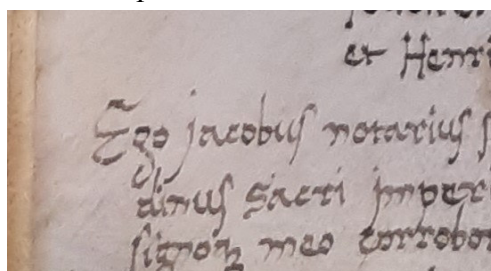 et Henri
Ego jacobus notarius s
dinus sacri jmper
signoq meo corrobor